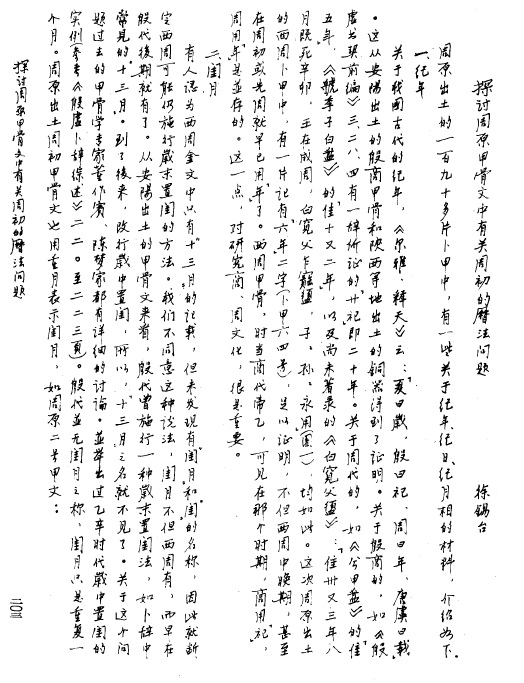 探讨周原甲骨文中有关周初的曆法问题
徐锡台
周原出土的一百九十多片卜甲中，有一些关于纪年、纪日、纪月相的材料，介绍如下。
一、纪年
关于我國古代的纪年，《尔雅、释天》云：“夏曰歲，殷曰祀，周曰年，唐虞曰載
。这从安陽出土的殷商甲骨和陕西等地出土的銅器得到了证明。关于殷商的，如《殷
虚书契前编》三、二八、四有一辞所证的廿祀即二十年。关于周代的，如《兮甲盘》的“隹
五年”，《虢季子白盘》的“隹十又二年”，以及尚未著录的《白寛父盨》：“隹卅又三年八
月既死辛卯，王在成周，白寛父乍寵盨，子。孙。永用（圖一），均如此。这次周原出土
的西周卜甲中，有一片记有“六年”二字（卜甲六四号），足以证明，不但西周中晚期，甚至
在周初或先周就早已用“年”了。西周甲骨，时当商代帝乙，可见在那个时期，“商用祀”，
周用年是並存的。这一点，对研究商、周文化，很是重要。
二、闰月
有人認为西周金文中只有“十三月”的记载，但未发现有“闰月”和“闰”的名称，因此就断
定西周可能仍施行歲末置闰的方法。我们不同意这种说法，闰月不但西周有，而早在
殷代後期就有了。从安陽出土的甲骨文来看，殷代曾施行一种歲末置闰法，如卜辞中
常見的“十三月”。到了後来，改行歲中置闰，所以，“十三月”之名就不见了。关于这个问
題过去的甲骨学专家董作賓、陈梦家都有详细的讨论。並举出过乙辛时代歲中置闰的
实例参考《殷虚卜辞综述》二二〇至二二三頁）。殷代並无闰月之称，闰月只是重复一
个月。周原出土周初甲骨文也用重月表示闰月，如周原二号甲文：
探讨周原甲骨文中有关周初的曆法问题
二〇三